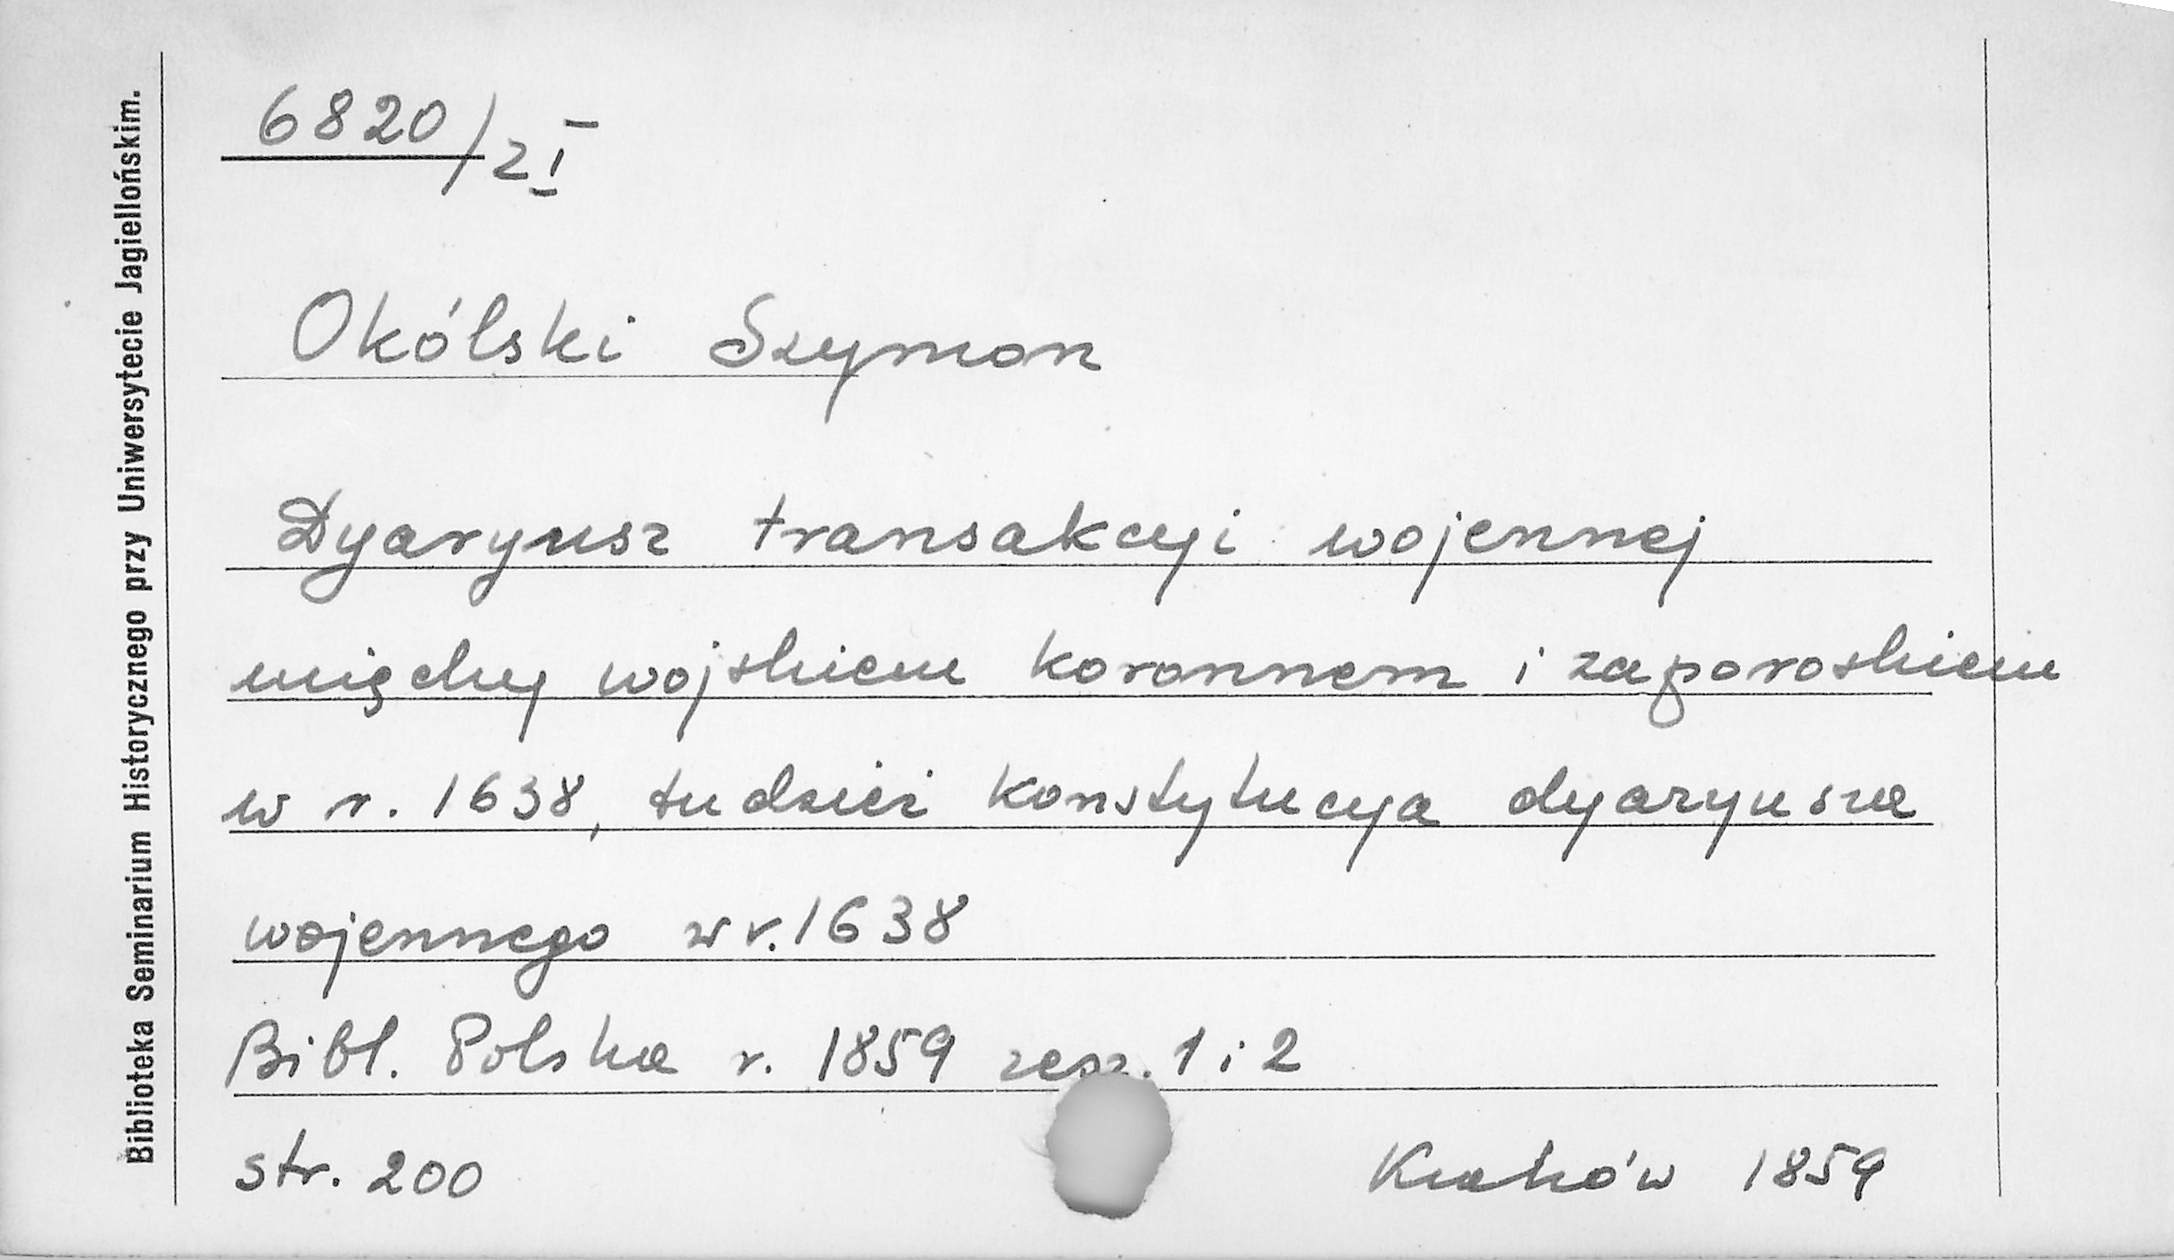 Biblioteka Seminarium Historycznego przy Uniwersytecie Jagiellońskim.
6820/2 I
Okólski Szymon
Dyaryusz transakcyi wojennej
między wojskiem koronnem i zaporoskiem
w r. 1638, tudzież konstytucya dyaryusza
wojennego w r. 1638
Bibl. Polska r. 1859 zesz. 1 i 2
str. 200 Kraków 1859